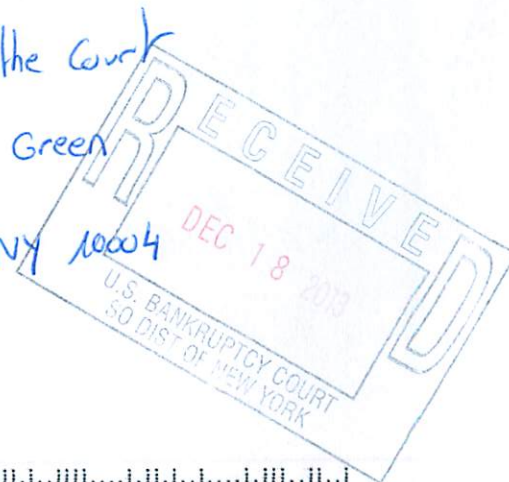 the Court
Green
NY 10004
RECEIVED
DEC 18 2013
U.S. BANKRUPTCY COURT
SO DIST OF NEW YORK